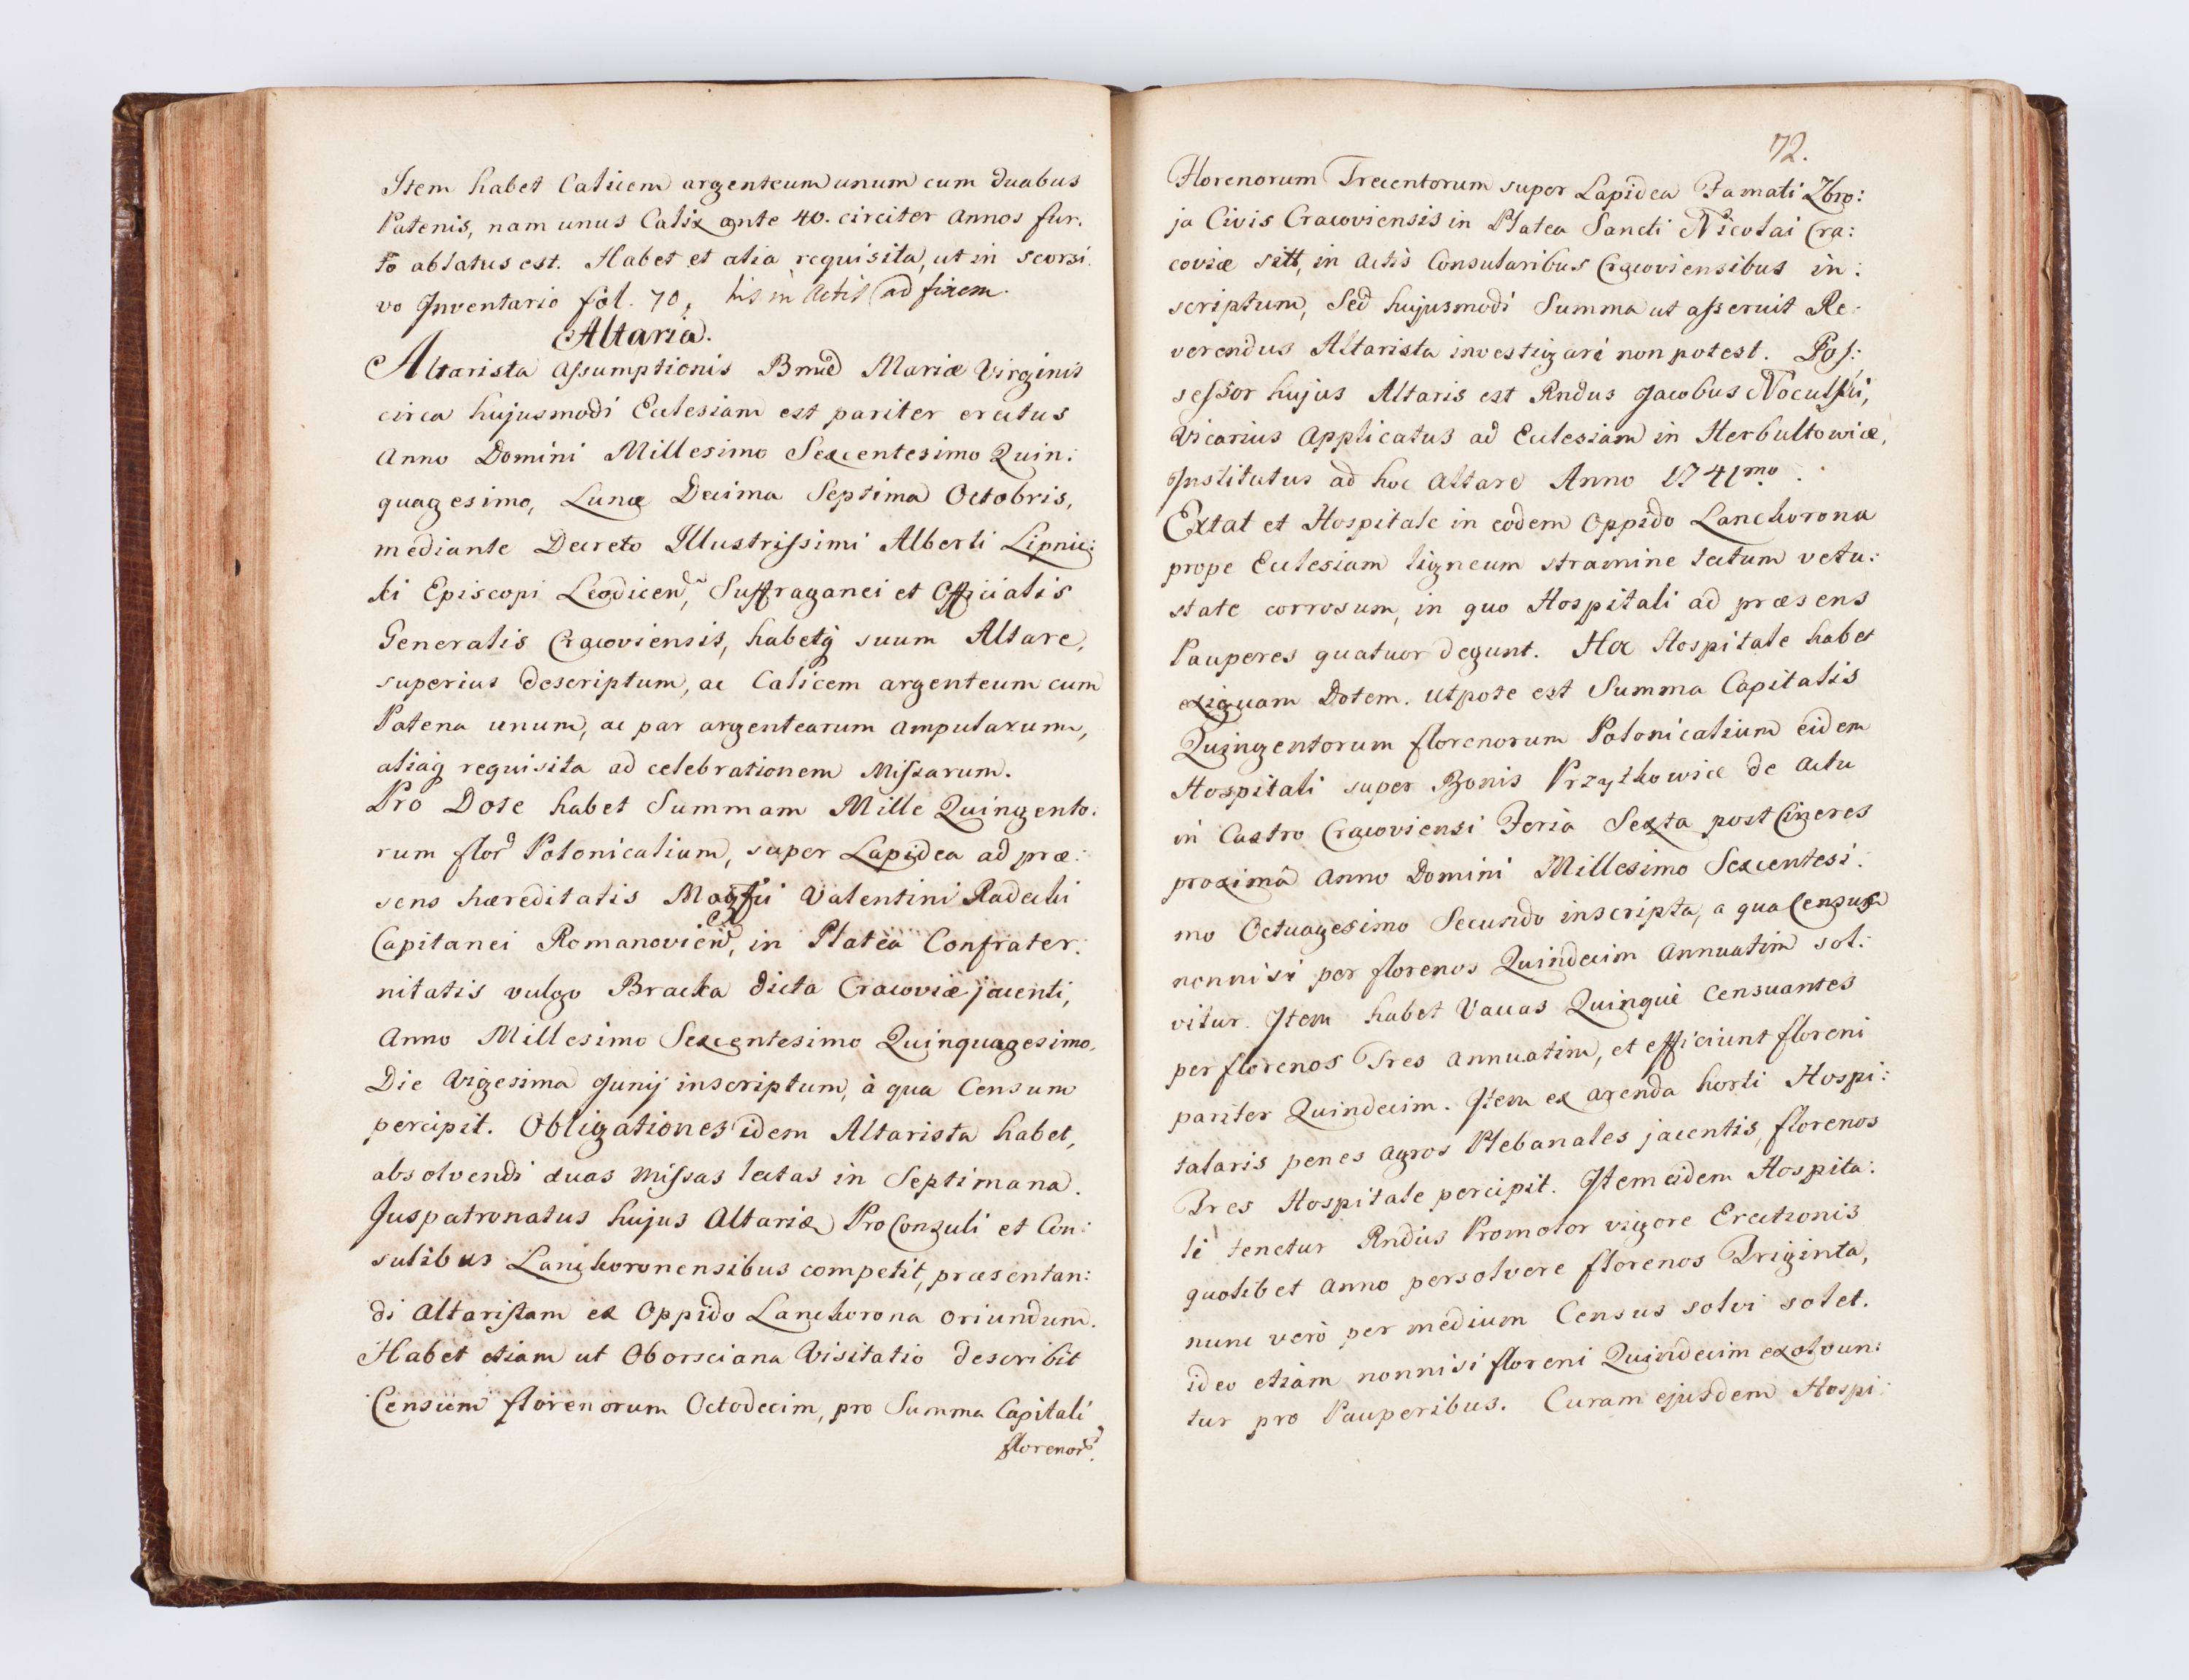 Item habet Calicem argenteum unum cum duabus
Patenis, nam unus Calix ante 40. circiter Annos fur:
to ablatus est. Habet et alia requisita, ut in seorsi:
vo Inventario fol. 70, his in Actis ad finem.
Altaria.
Altarista Assumptionis Bmæ Mariæ Virginis
circa hujusmodi Ecclesiam est pariter erectus
Anno Domini Millesimo Sexcentesimo Quin:
quagesimo, Lunæ Decima Septima Octobris,
mediante Decreto Illustrissimi Alberti Lipnic:
ki Episcopi Leodicen, Suffraganei et Officialis
Generalis Cracoviensis, habetq suum Altare,
superius descriptum, ac Calicem argenteum cum
Patena unum, ac par argentearum Ampularum,
aliaq requisita ad celebrationem Missarum.
Pro Dote habet Summam Mille Quingento:
rum flor Polonicalium, super Lapidea ad præ:
sens hæreditatis Valentini Radecki
Capitanei Romanovien, in Platea Confrater:
nitatis vulgo Bracka dicta Cracoviæ jacenti,
Anno Millesimo Sexcentesimo Quinquagesimo,
Die Vigesima Junij inscriptum, à qua Censum
percipit. Obligationes idem Altarista habet,
absolvendi duas Missas lectas in Septimana.
Juspatronatus hujus Altariæ ProConsuli et Con:
sulibus Lanckoronensibus competit, præsentan:
di Altaristam ex Oppido Lanckorona oriundum.
Habet etiam ut Oborsciana Visitatio describit
Censum florenorum Octodecim, pro Summa Capitali
florenor.
72.
Florenorum Trecentorum super Lapidea Famati Zbro:
ja Civis Cracoviensis in Platea Sancti Nicolai Cra:
coviæ sitt, in Actis Consularibus Cracoviensibus in:
scriptum, Sed hujusmodi Summa ut asseruit Re:
verendus Altarista investigari non potest. Pos:
sessor hujus Altaris est Rndus Jacobus
Vicarius Applicatus ad Ecclesiam in Herbultowice,
Institutus ad hoc Altare Anno 1741mo.
Extat et Hospitale in eodem Oppido Lanckorona
prope Ecclesiam ligneum stramine tectum vetu:
state corrosum, in quo Hospitali ad præsens
Pauperes quatuor degunt. Hoc Hospitale habet
exiguam Dotem. utpote est Summa Capitalis
Quingentorum florenorum Polonicalium eidem
Hospitali super Bonis Przytkowice de actu
in Castro Cracoviensi Feria Sexta post Cineres
proximâ Anno Domini Millesimo Sexcentesi:
mo Octuagesimo Secundo inscripta, a qua Censum
nonnisi per florenos Quindecim Annuatim sol:
vitur. Item habet Vaccas Quinque Censuantes
per florenos Tres annuatim, et efficiunt floreni
pariter Quindecim. Item ex arenda horti Hospi:
talaris penes Agros Plebanales jacentis, florenos
Tres Hospitale percipit. Item eidem Hospita:
li tenetur Rndus Promotor vigore Erectionis
quolibet Anno persolvere florenos Triginta,
nunc verò per medium Census solvi solet.
ideo etiam nonnisi floreni Quindecim exolvun:
tur pro Pauperibus. Curam ejusdem Hospi: